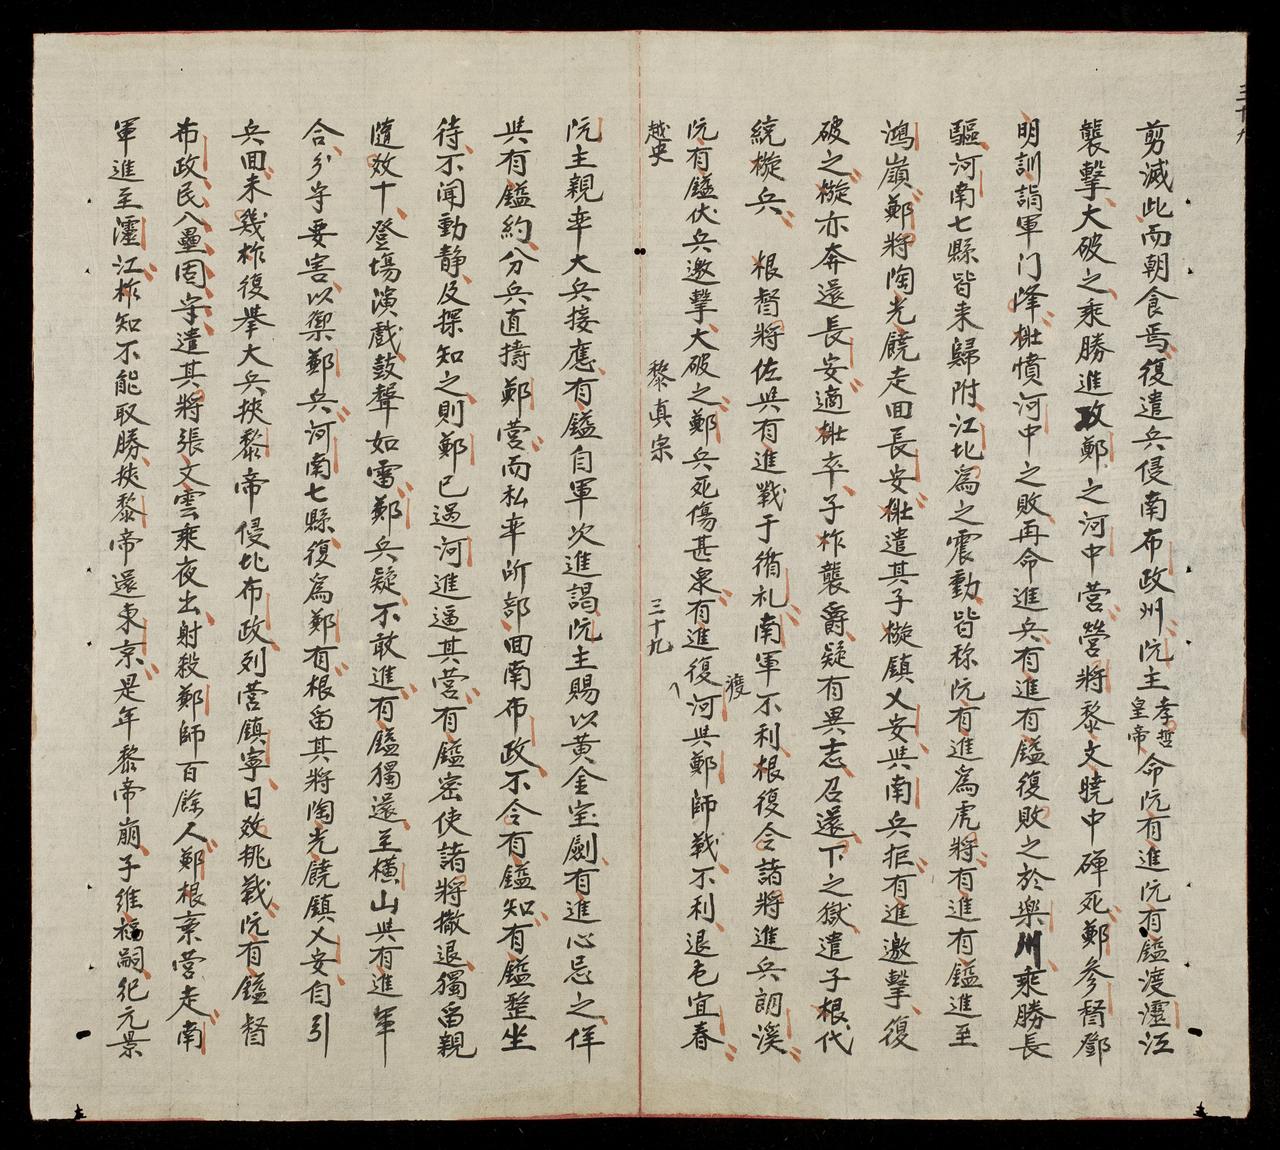 三十九
剪滅此而朝食焉復遣兵侵南布政州阮主孝哲皇帝命阮有進阮有鎰渡𤅷江
襲擊大破之乘勝進攻鄭之河中營營將黎文曉中磾死鄭參督鄧
明訓詣軍门降𣖕憤河中之敗再命進兵有進有鎰復敗之於樂州乘勝長
驅河南七縣皆来歸附江北爲之震動皆称阮有進爲虎將有進有鎰進至
鴻嶺鄭將陶光饒走回長安𣖕遣其子樅鎮乂安與南兵拒有進邀擊復
破之樅亦奔還長安適𣖕卒子柞襲爵疑有異志召還下之獄遣子根代
統樅兵 根督將佐與有進戰于脩礼南軍不利根復令諸將進兵朗溪
阮有鎰伏兵邀擊大破之鄭兵死傷甚衆有進復渡河與鄭師戰不利退屯宜春
越史 黎真宗 三十九
阮主親率大兵接應有鎰自軍次進謁阮主賜以黄金宝劍有進心忌之佯
與有鎰約分兵直擣鄭營而私率所部回南布政不令有鎰知有鎰整坐
待不聞動静及探知之則鄭已過河進逼其營有鎰密使諸將撤退獨留親
隨效十登塲演戲鼓聲如雷鄭兵疑不敢進有鎰獨還至橫山與有進軍
合分守要害以禦鄭兵河南七縣復爲鄭有根留其將陶光饒鎮乂安自引
兵回未幾柞復舉大兵挾黎帝侵北布政列营鎮寜日效挑戰阮有鎰督
布政民入壘固守遣其將張文雲乘夜出射殺鄭師百餘人鄭根棄营走南
軍進至𤅷江柞知不能取勝挾黎帝還東京是年黎帝崩子維福嗣紀元景